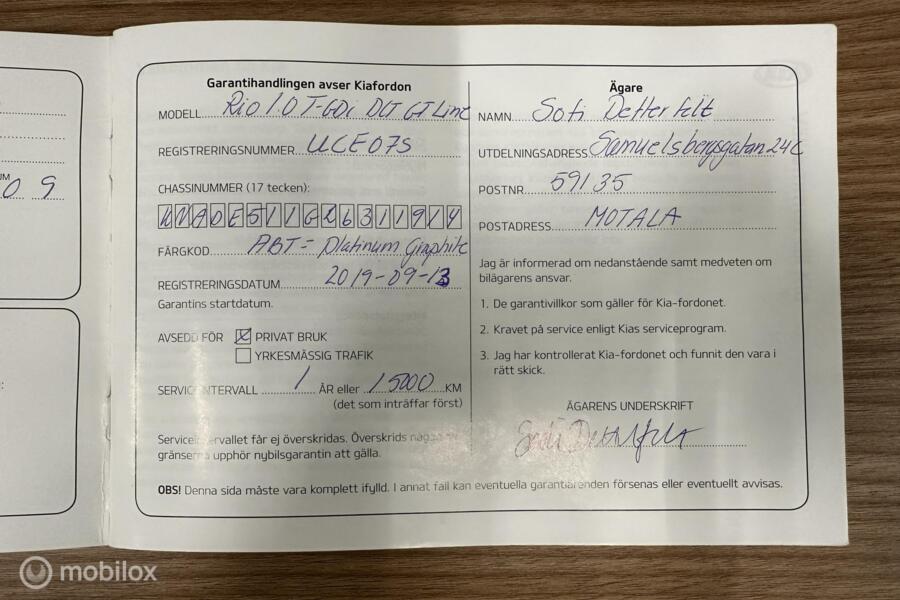 Garantihandlingen avser Kiafordon
MODELL Rio 1.0 T-GDi DCT GT Line
REGISTRERINGSNUMMER UCE07S
CHASSINUMMER (17 tecken):
FÄRGKOD ABT = Platinum Graphite
REGISTRERINGSDATUM 2019-09-13
Garantins startdatum.
AVSEDD FÖR X PRIVAT BRUK
YRKESMÄSSIG TRAFIK
SERVICEINTERVALL 1 ÅR eller 15000 KM
(det som inträffar först)
Serviceintervallet får ej överskridas. Överskrids någon av
gränserna upphör nybilsgarantin att gälla.
Ägare
NAMN
UTDELNINGSADRESS Samuelsbergsgatan 24C
POSTNR 59135
POSTADRESS MOTALA
Jag är informerad om nedanstående samt medveten om
bilägarens ansvar.
1. De garantivillkor som gäller för Kia-fordonet.
2. Kravet på service enligt Kias serviceprogram.
3. Jag har kontrollerat Kia-fordonet och funnit den vara i
rätt skick.
ÄGARENS UNDERSKRIFT
OBS! Denna sida måste vara komplett ifylld. I annat fall kan eventuella garantiärenden försenas eller eventuellt avvisas.
09
mobilox